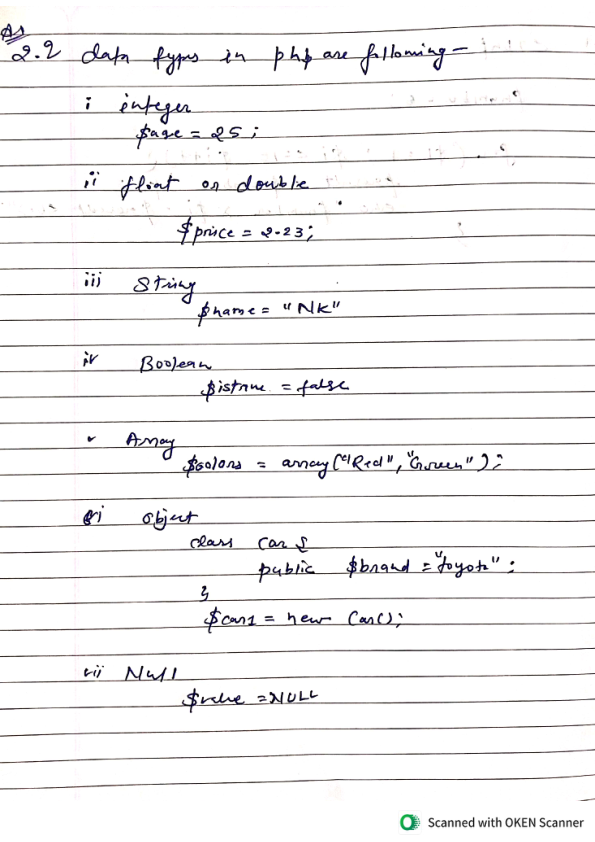 As
2.2 data types in php are following -
i integer
$age = 25 ;
ii float or double
$price = 2.23;
iii) String
$name = "NK"
iv Boolean
$istrue = false
v Array
$colors = array("Red", "Green");
vi object
class Car {
public $brand = "toyota" ;
}
$car1 = new Car();
vii Null
$value = NULL
Scanned with OKEN Scanner